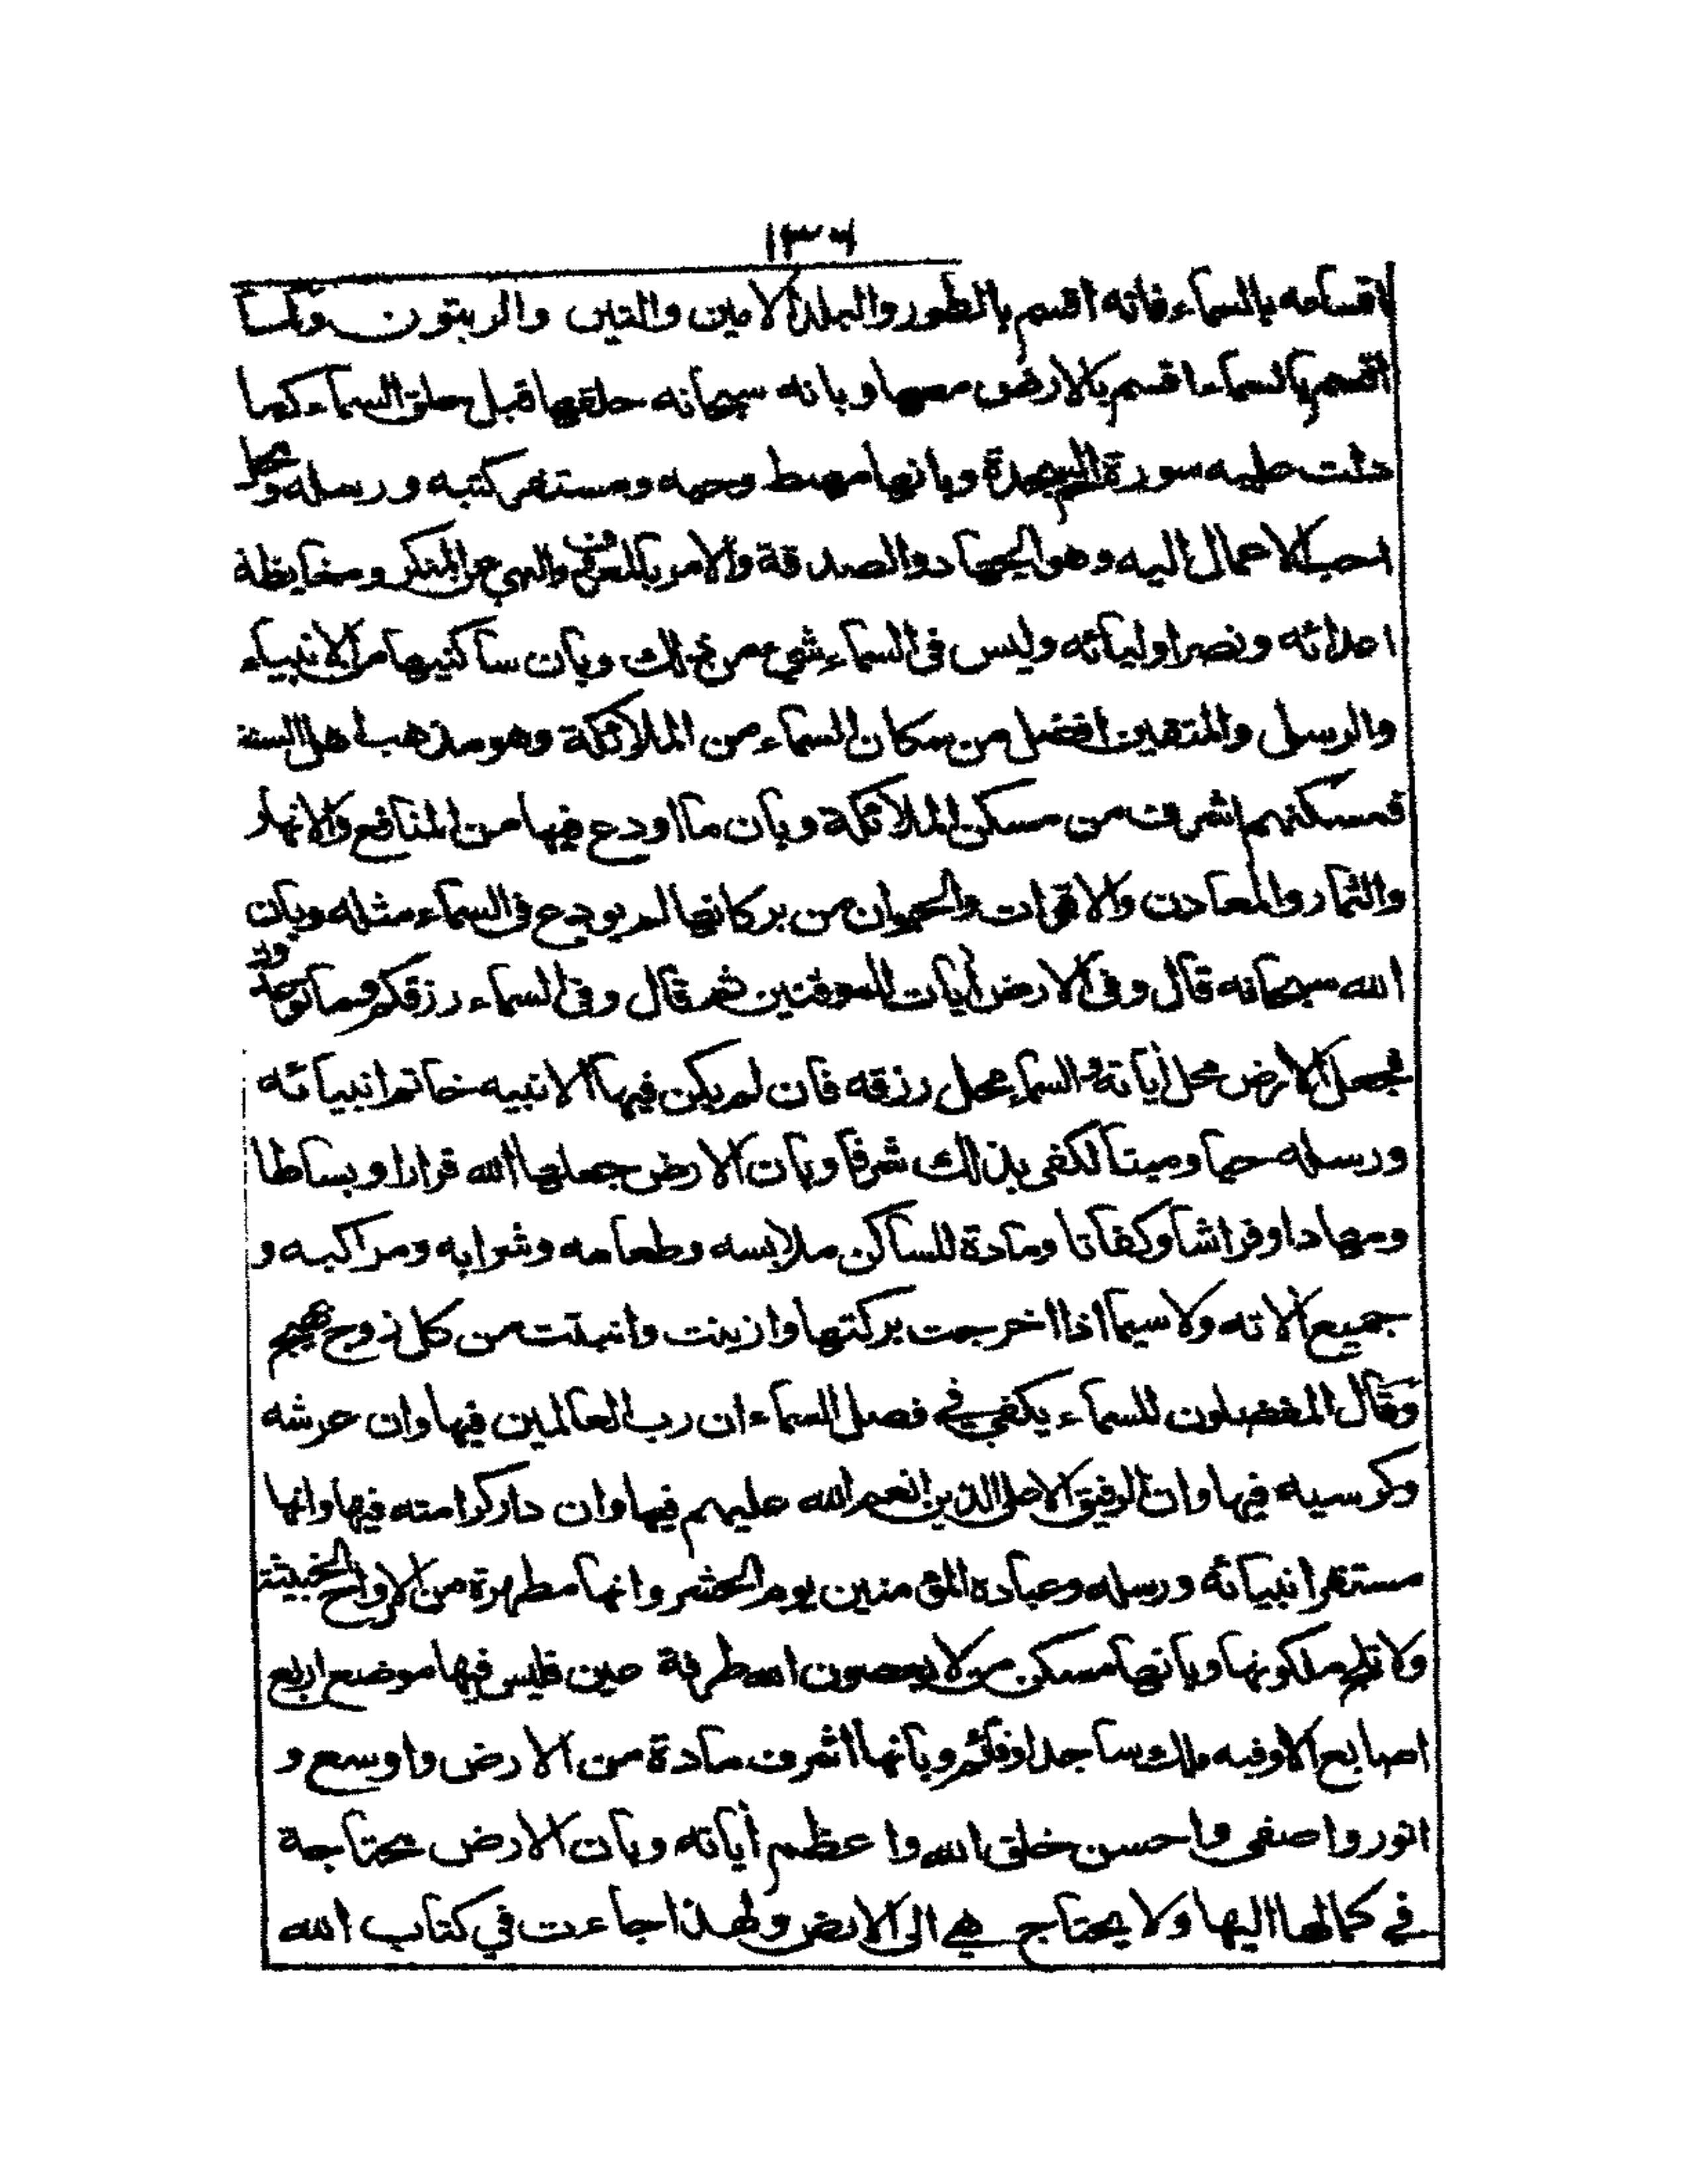 ١٣٦
لاقسامه بالسماء فانه اقسم بالطور والبلد الامين والتين والزيتون ولما
اقسم بالسماء اقسم بالارض معها وبانه سبحانه خلقها قبل خلق السماء كما
دلت عليه سورة السجدة وبانها مهبط وحيه ومستقر كتبه ورسله ومحل
احب الاعمال اليه وهو الجهاد والصدقة والامر بالمعروف والنهي عن المنكر ومغايظة
اعدائه ونصر اوليائه وليس في السماء شيء من ذلك وبان ساكنيها من الانبياء
والرسل والمتقين افضل من سكان السماء من الملائكة وهو مذهب اهل السنة
فمسكنهم اشرف من مسكن الملائكة وبان ما اودع فيها من المنافع والانهار
والثمار والمعادن والاقوات والحيوان من بركاتها لم يودع في السماء مثله وبان
الله سبحانه قال وفي الارض أيات للموقنين ثم قال وفي السماء رزقكم وما توعدون
فجعل الارض محل أياته والسماء محل رزقه فان لم يكن فيها الا نبيه خاتم انبيائه
ورسله حيا وميتا لكفى بذلك شرفا وبان الارض جعلها الله قرارا وبساطا
ومهادا وفراشا وكفاتا ومادة للساكن ملابسه وطعامه وشرابه ومراكبه و
جميع ألاته ولا سيما اذا اخرجت بركتها وازينت وانبتت من كل زوج بهيج
وقال المفضلون للسماء يكفي في فضل السماء ان رب العالمين فيها وان عرشه
وكرسيه فيها وان الرفيق الاعلى الذين انعم الله عليهم فيها وان دار كرامته فيها وانها
مستقر انبيائه ورسله وعباده المؤمنين يوم الحشر وانها مطهرة من الارواح الخبيثة
ولا تلج ملكوتها وبانها مسكن من لا يعصون الله طرفة عين فليس فيها موضع اربع
اصابع الا وفيه ملك ساجد او قائم وبانها اشرف مادة من الارض واوسع و
انور واصفى واحسن خلق الله واعظم أياته وبان الارض محتاجة
في كمالها اليها ولا يحتاج هي الى الارض ولهذا جاءت في كتاب الله